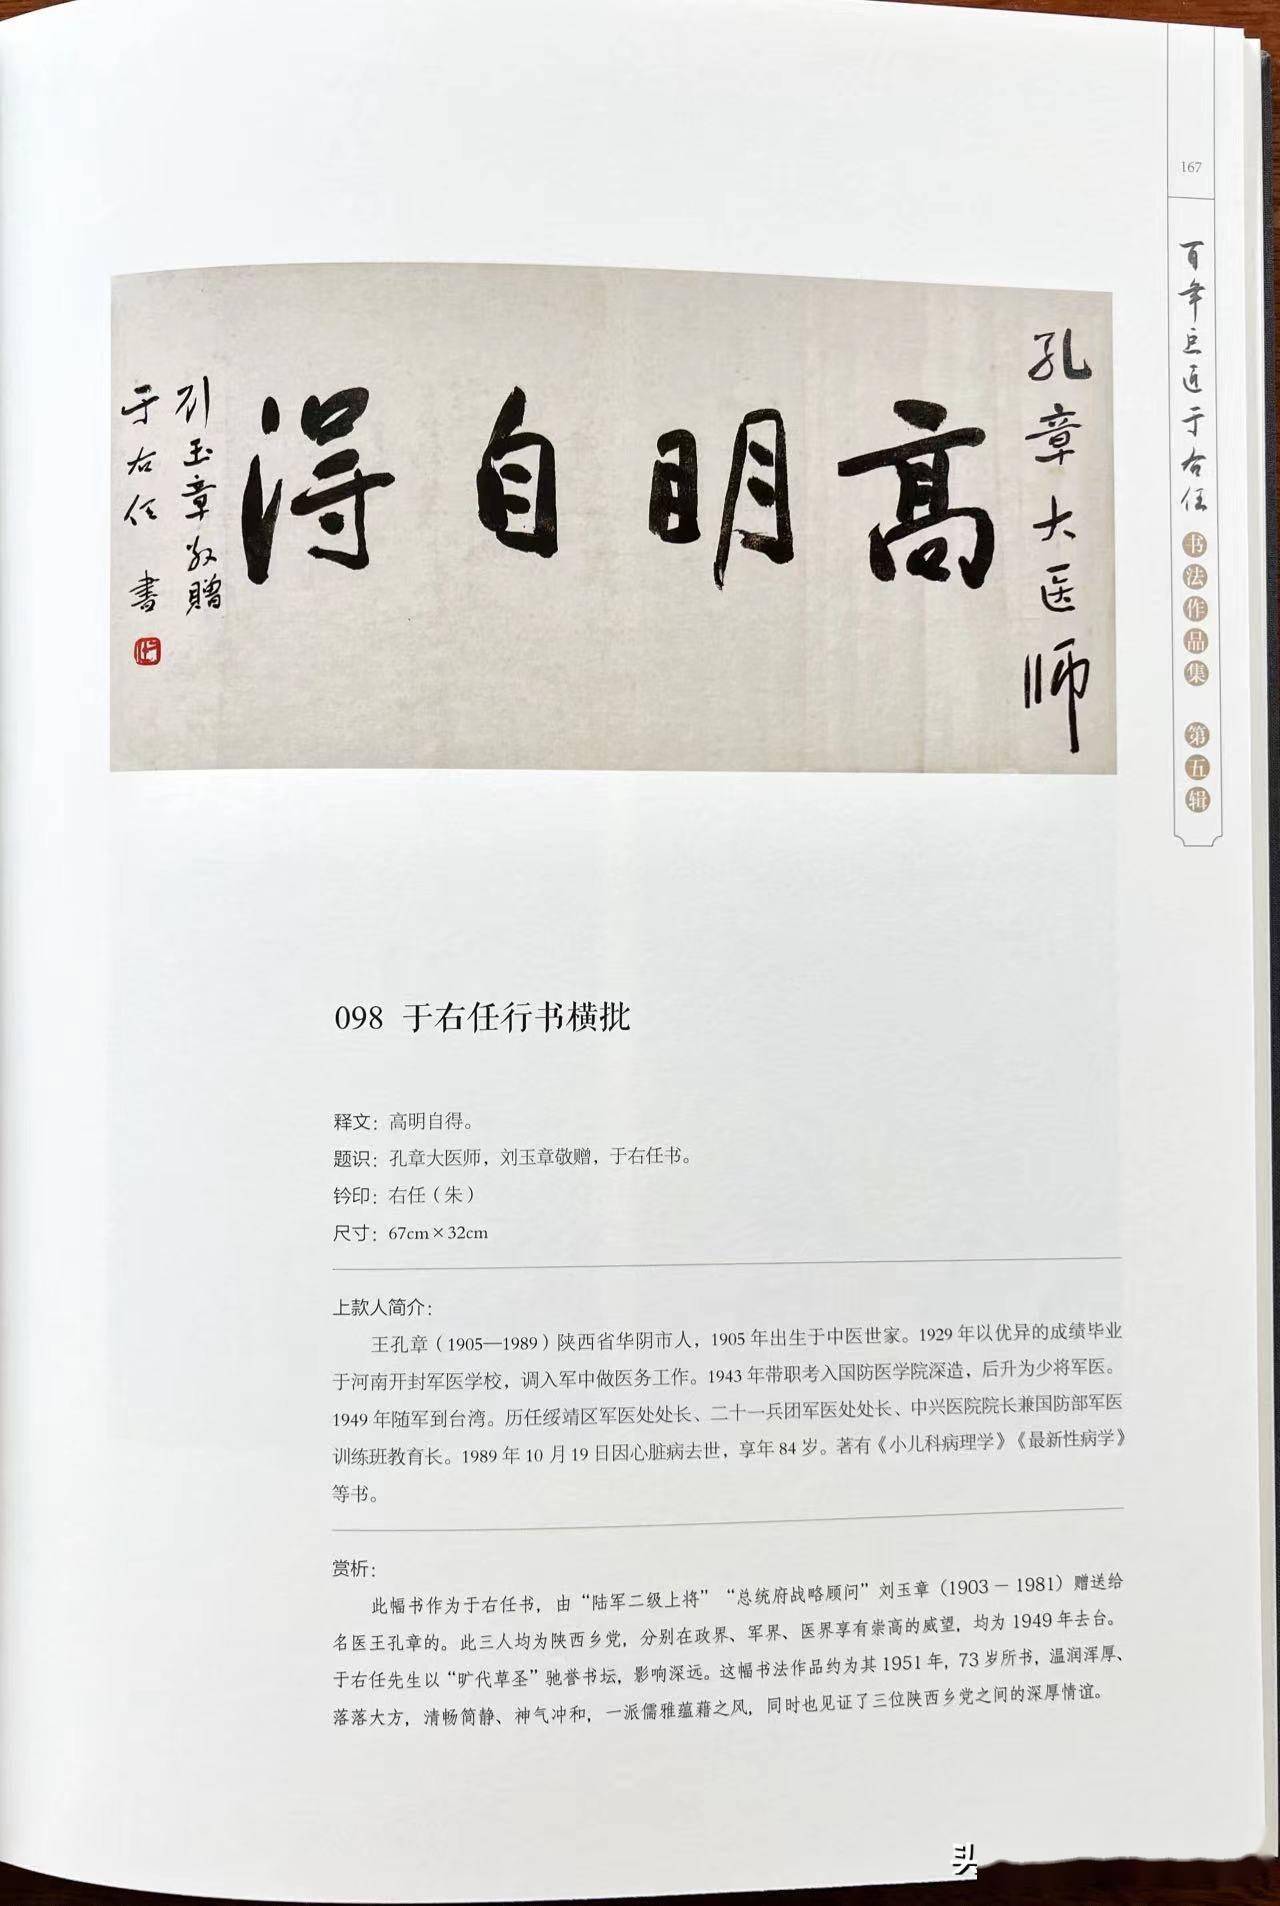 167
百年巨匠于右任书法作品集 第五辑
孔章大医师
高明自得
刘玉章敬贈
于右任書
098 于右任行书横批
释文：高明自得。
题识：孔章大医师，刘玉章敬赠，于右任书。
钤印：右任（朱）
尺寸：67cm×32cm
上款人简介：
王孔章（1905—1989）陕西省华阴市人，1905年出生于中医世家。1929年以优异的成绩毕业
于河南开封军医学校，调入军中做医务工作。1943年带职考入国防医学院深造，后升为少将军医。
1949年随军到台湾。历任绥靖区军医处处长、二十一兵团军医处处长、中兴医院院长兼国防部军医
训练班教育长。1989年10月19日因心脏病去世，享年84岁。著有《小儿科病理学》《最新性病学》
等书。
赏析：
此幅书作为于右任书，由“陆军二级上将”“总统府战略顾问”刘玉章（1903－1981）赠送给
名医王孔章的。此三人均为陕西乡党，分别在政界、军界、医界享有崇高的威望，均为1949年去台。
于右任先生以“旷代草圣”驰誉书坛，影响深远。这幅书法作品约为其1951年，73岁所书，温润浑厚、
落落大方，清畅简静、神气冲和，一派儒雅蕴藉之风，同时也见证了三位陕西乡党之间的深厚情谊。
头